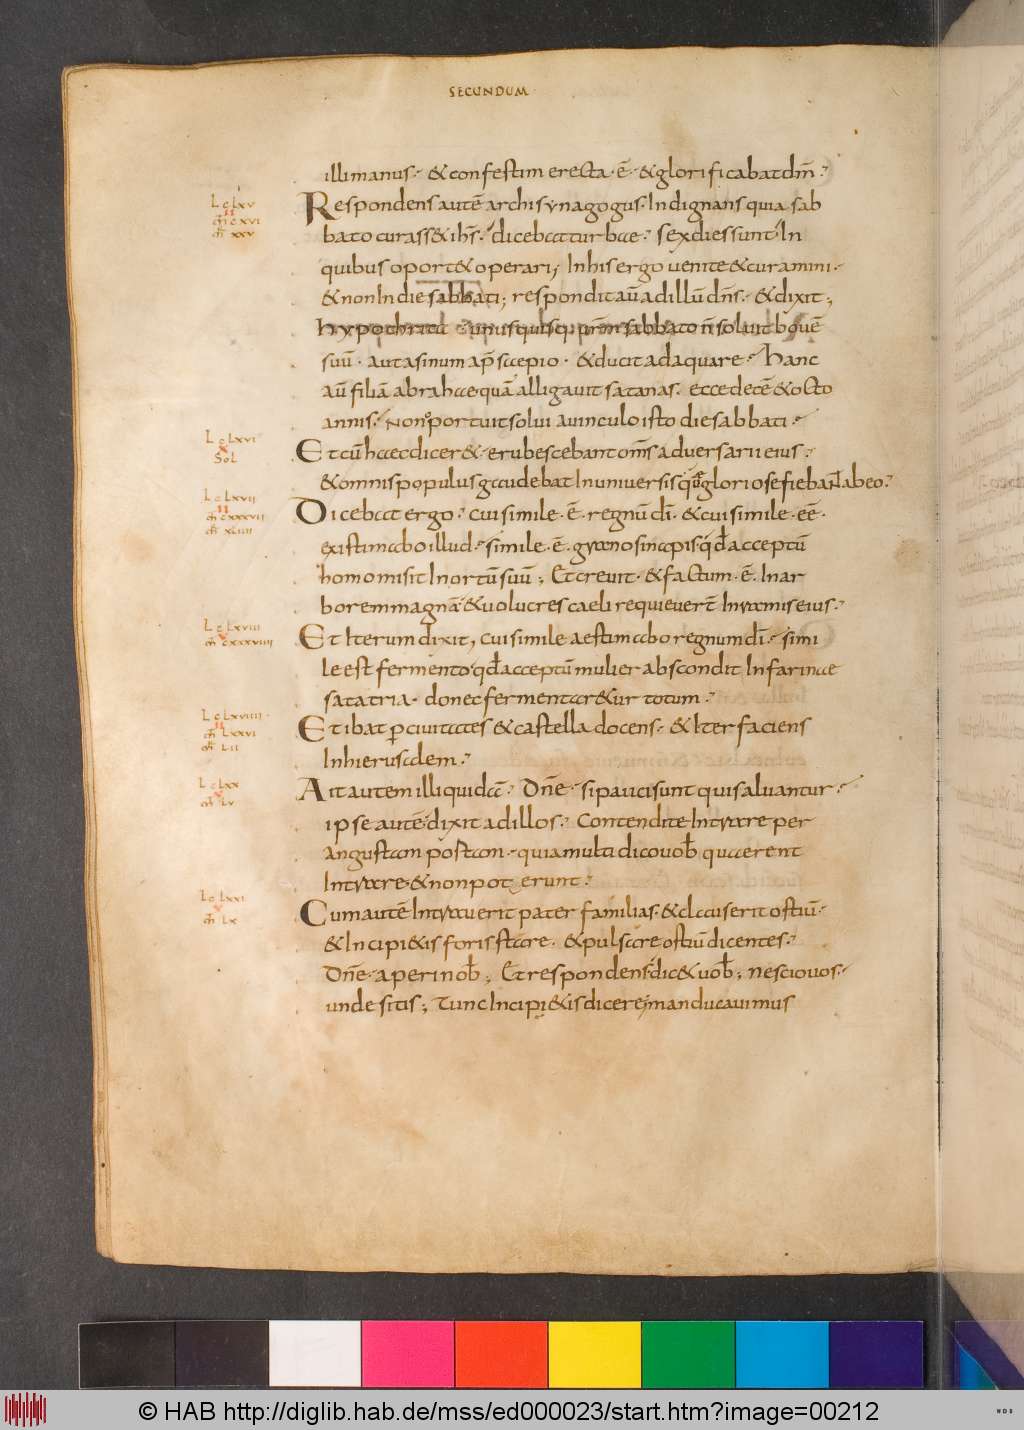 SECUNDUM
illi manus. & confestim erecta. ē. & glorificabat dm̄.
L c Lxv
Respondens autē archisynagogus. Indignans quia sab
m̄ c xvi
m̄ xxv
bato curass& ihs̄. dicebat turbae. sex dies sunt In
quibus oport& operari, In his ergo uenite & curamini.
& non In die sabbati; respondit aū ad illū dn̄s. & dixit;
hypochritae unusquisque ur̄m sabbato n̄ soluit bouē
suū. aut asinum a p̄saepio. & ducit adaquare. hanc
aū filiā abrahae quā alligauit satanas. ecce decē & octo
annis. Non oportuit solui a uinculo isto die sabbati.
L c Lxvi
Sol
Et cū haec dicer& erubescebant om̄s aduersarii eius.
& omnis populus gaudebat In uniuersis quae gloriose fiebant ab eo.
L c Lxvii
m̄ cxxxvii
m̄ xLiiii
Dicebat ergo. cui simile. ē. regnū dī. & cui simile. eē.
existimabo illud. simile. ē. grano sinapis. qd̄ acceptū
homo misit In ortū suū; Et creuit. & factum. ē. In ar
borem magnā & uolucres caeli requieuer̄t In ramis eius.
L c Lxviii
m̄ cxxxviiii
Et Iterum dixit, cui simile aestimabo regnum dī. simi
le est fermento qd̄ acceptū mulier abscondit In farinae
sata tria. donec fermentar&ur totum.
L c Lxviiii
m̄ Lxxvi
m̄ Lii
Et ibat p̄ ciuitates & castella docens. & Iter faciens
In hierusalem.
L c Lxx
m̄ Lv
Ait autem illi quidā. Dn̄e. si pauci sunt qui saluantur.
ipse autē dixit ad illos. Contendite Intrare per
angustam portam. quia multi dico uob̄ quaerent
Intrare & non poterunt.
L c Lxxi
m̄ Lx
Cum autē Intrauerit pater familias. & clauserit ostiū.
& Incipi&is foris stare. & pulsare ostiū dicentes.
Dn̄e. aperi nob̄; Et respondens dic& uob̄; nescio uos.
unde sitis; Tunc Incipi&is dicere; manducauimus
© HAB http://diglib.hab.de/mss/ed000023/start.htm?image=00212